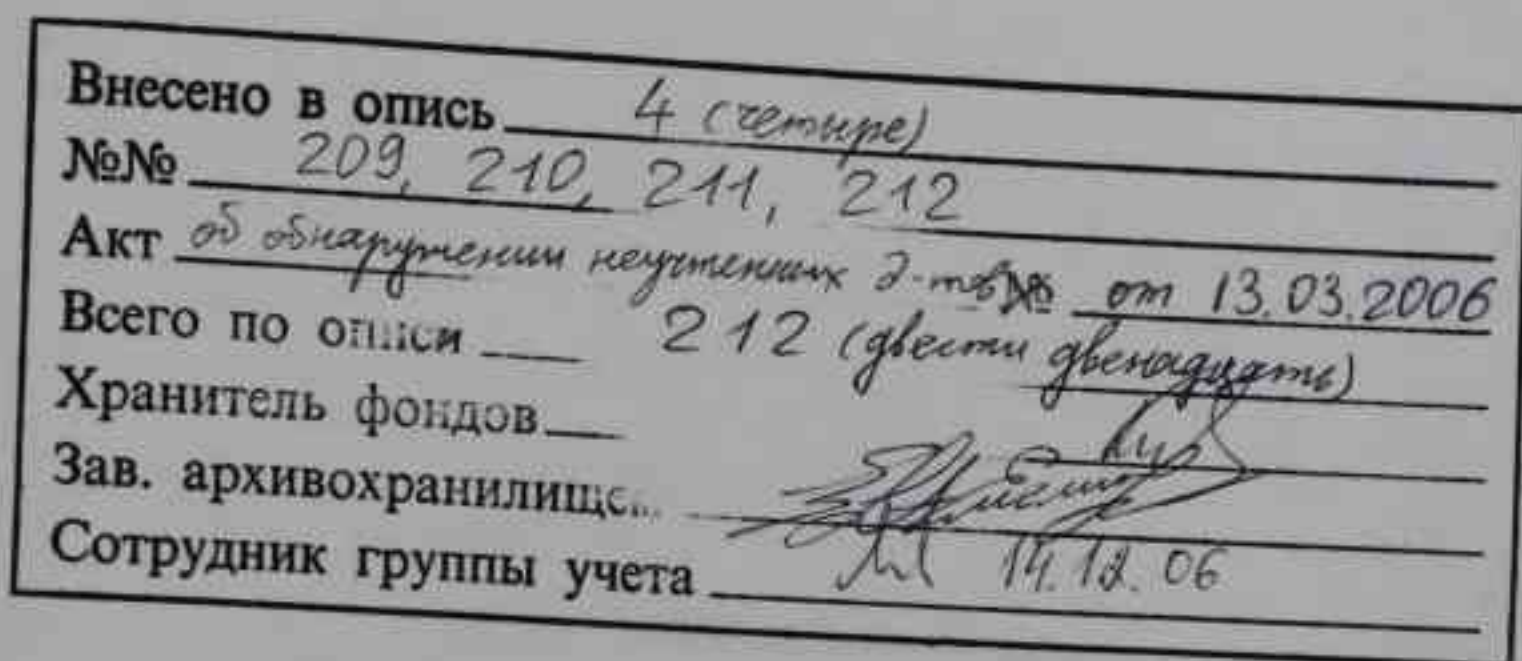 Внесено в опись 4 (четыре)
№№ 209, 210, 211, 212
Акт об обнаружении неучтенных д-тов № от 13.03.2006
Всего по описи 212 (двести двенадцать)
Хранитель фондов
Зав. архивохранилищем
Сотрудник группы учета 14.12.06